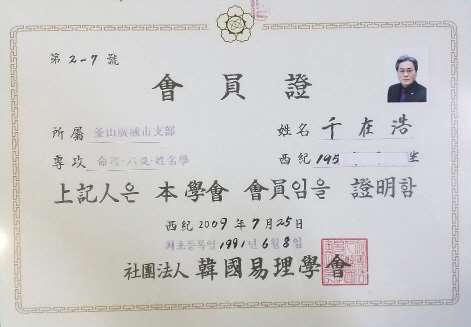 第 2-7 號
會員證
所屬 釜山廣域市支部
姓名 千在浩
專攻 命理·六爻·姓名學
西紀 195 生
上記人은 本學會 會員임을 證明함
西紀 2009 年 7 月 25 日
최초등록일 1991 년 6 월 8 일
社團法人 韓國易理學會